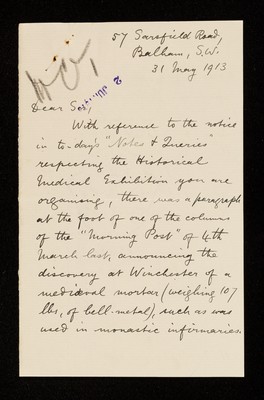 57 Garsfield Road,
Balham, S.W.
31 May 1913
Dear Sir,
With reference to the notice
in to-day's "Notes & Queries"
respecting the Historical
Medical Exhibition you are
organising, there was a paragraph
at the foot of one of the columns
of the "Morning Post" of 4th
March last, announcing the
discovery at Winchester of a
mediæval mortar (weighing 107
lbs, of bell-metal), such as was
used in monastic infirmaries.